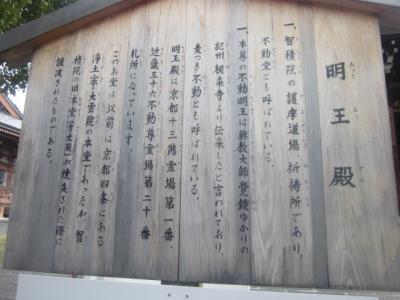 明王殿
みょう おう でん
一、智積院の護摩道場、祈祷所であり、
不動堂とも呼ばれている。
一、本尊の不動明王は興教大師覚鑁ゆかりの
紀州根来寺より伝来したと言われており、
麦つき不動とも呼ばれている。
明王殿は京都十三佛霊場第一番、
近畿三十六不動尊霊場第二十番
札所になっています。
このお堂は、以前は京都四条にある
浄土宗・大雲院の本堂であったが、智
積院の旧本堂が焼失された際に
譲渡されたものである。